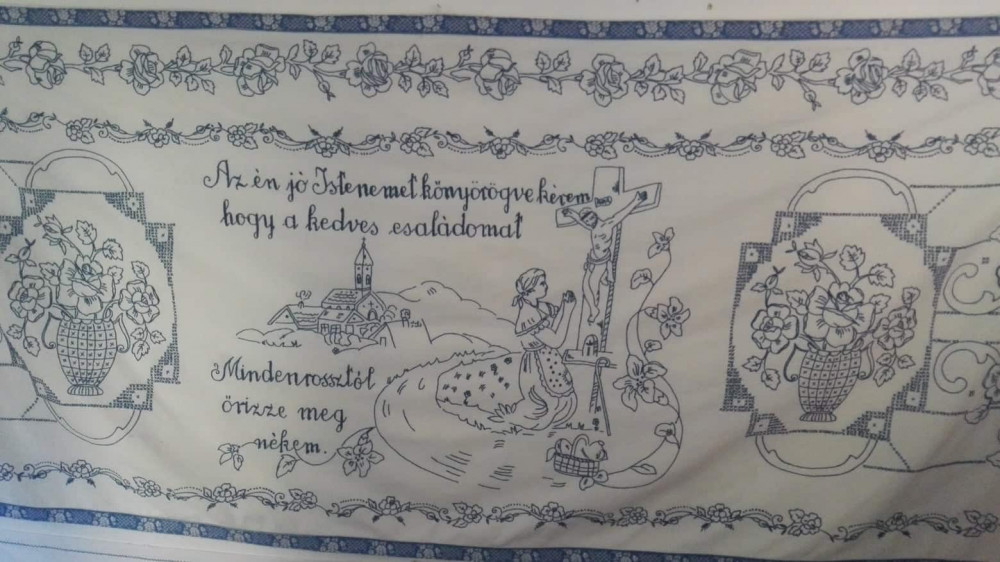 Az én jó Istenemet könyörögve kérem
hogy a kedves családomat
Minden rossztól
őrizze meg
nékem.